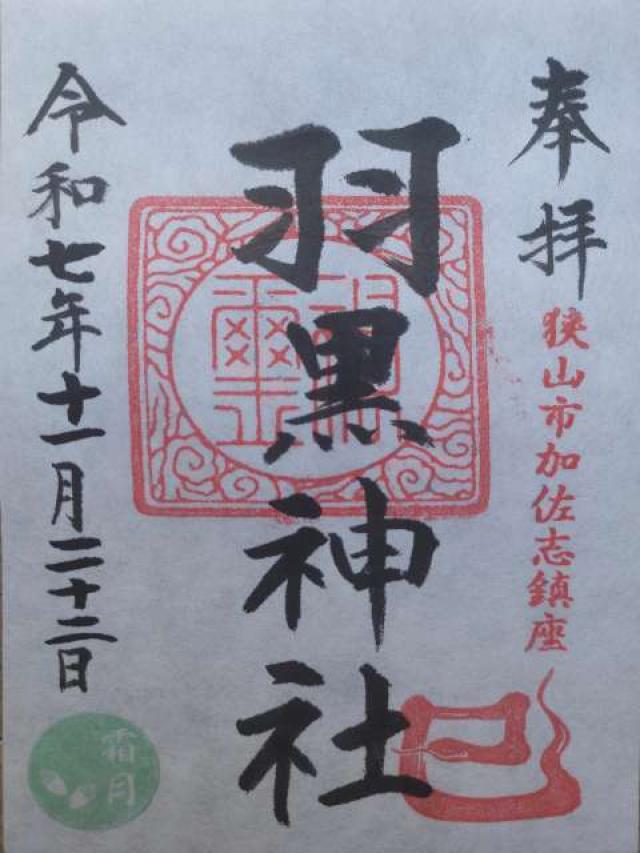 奉拝
狭山市加佐志鎮座
羽黒神社
神璽
巳
令和七年十一月二十二日
霜月